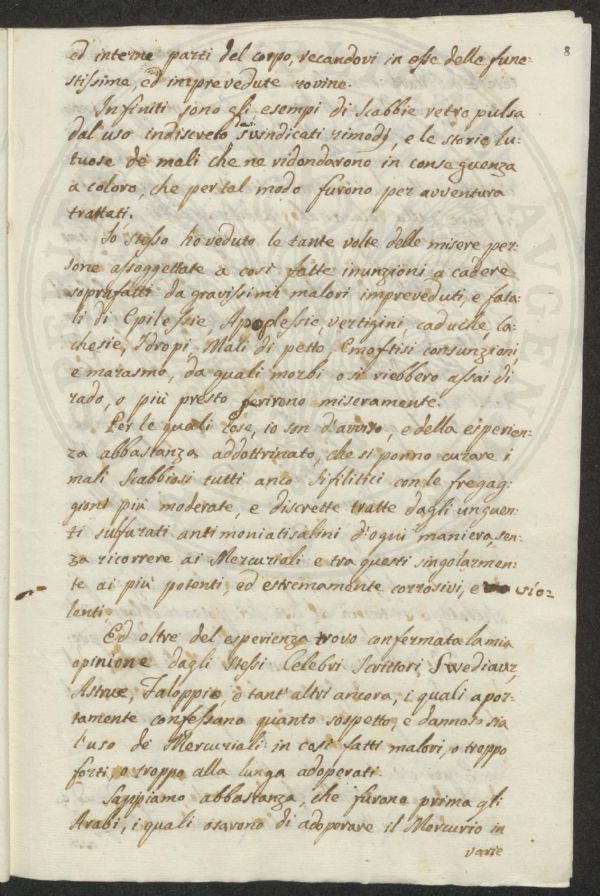 8
ed interne parti del corpo, recandovi in esse delle fune-
stissime, ed imprevedute rovine.
Infiniti sono gli esempi di Scabbie retro pulsa
dal uso indiscreto dei indicati rimedj, e le storie lu-
tuose de mali che ne ridondarono in conseguenza
a coloro, che per tal modo furono per avventura
trattati.
Io stesso ho veduto le tante volte delle misere per-
sone assoggettate a così fatte inunzioni a cadere
soprafatti da gravissimi malori impreveduti, e fata-
li di Epilessie, Apoplessie, vertigini caduche, Ca-
chesie, Idropi Mali di petto Emoftisi consunzioni,
e marasmo, da quali morbi o si riebbero assai di
rado, o più presto perirono miseramente.
Per le quali cose, io son d'avviso, e della esperien-
za abbastanza addottrinato, che si ponno curare i
mali Scabbiosi tutti anco Sifilitici con le fregag-
gioni più moderate, e discrette tratte dagli unguen-
ti sulfurati antimoniatisalini d'ogni maniera, sen-
za ricorrere ai Mercuriali e tra questi singolarmen-
te ai più potenti, ed estremamente corrosivi, e vio-
lenti.
Ed oltre del esperienza trovo confermata la mia
opinione dagli stessi Celebri Scrittori Swediaur,
Astrue, Faloppio, e tant' altri ancora, i quali aper-
tamente confessano quanto sospetto, e dannoso sia
l'uso de Mercuriali in così fatti malori, o troppo
forti, o troppo alla lunga adoperati.
Sappiamo abbastanza, che furono prima gli
Arabi, i quali osarono di adoperare il Mercurio in
varie